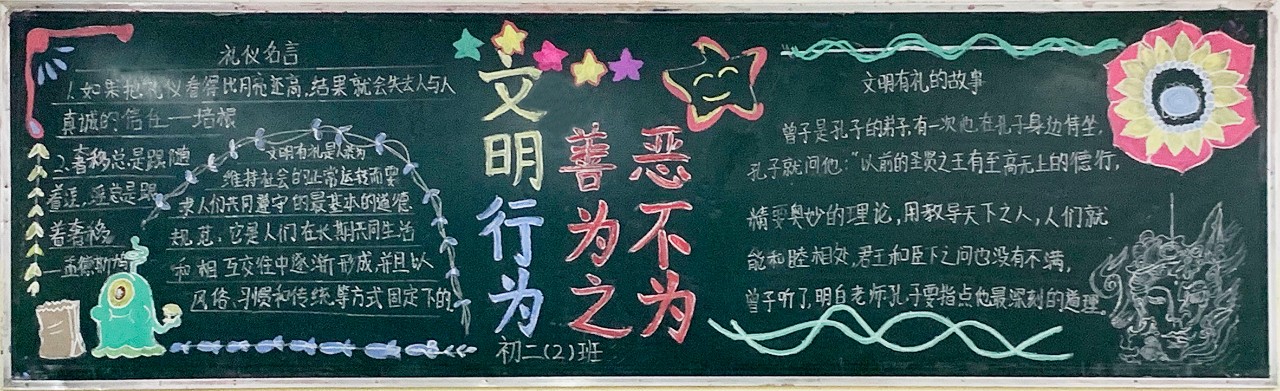 礼仪名言
1.如果把礼仪看得比月亮还高,结果就会失去人与人
真诚的信任一培根
2.奢移总是跟随
着淫,淫总是跟
着奢移
—孟德斯鸠
文明有礼是人类为
维持社会的正常运转而要
求人们共同遵守的最基本的道德
规范,它是人们在长期共同生活
和相互交往中逐渐形成,并且以
风俗、习惯和传统等方式固定下的
文明行为
善为之
恶不为
初二(2)班
文明有礼的故事
曾子是孔子的弟子,有一次他在孔子身边侍坐,
孔子就问他:“以前的圣贤之王有至高无上的德行,
精要奥妙的理论,用教导天下之人,人们就
能和睦相处,君王和臣下之间也没有不满,
曾子听了,明白老师孔子要指点他最深刻的道理。